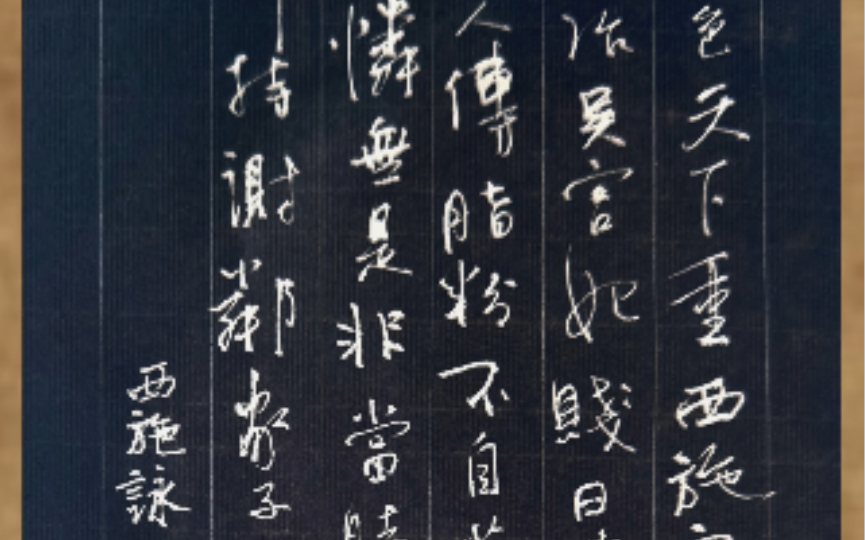 色天下重西施
作吳宮妃賤日
人傅脂粉不自
憐無是非當
持謝鄰家子
西施詠